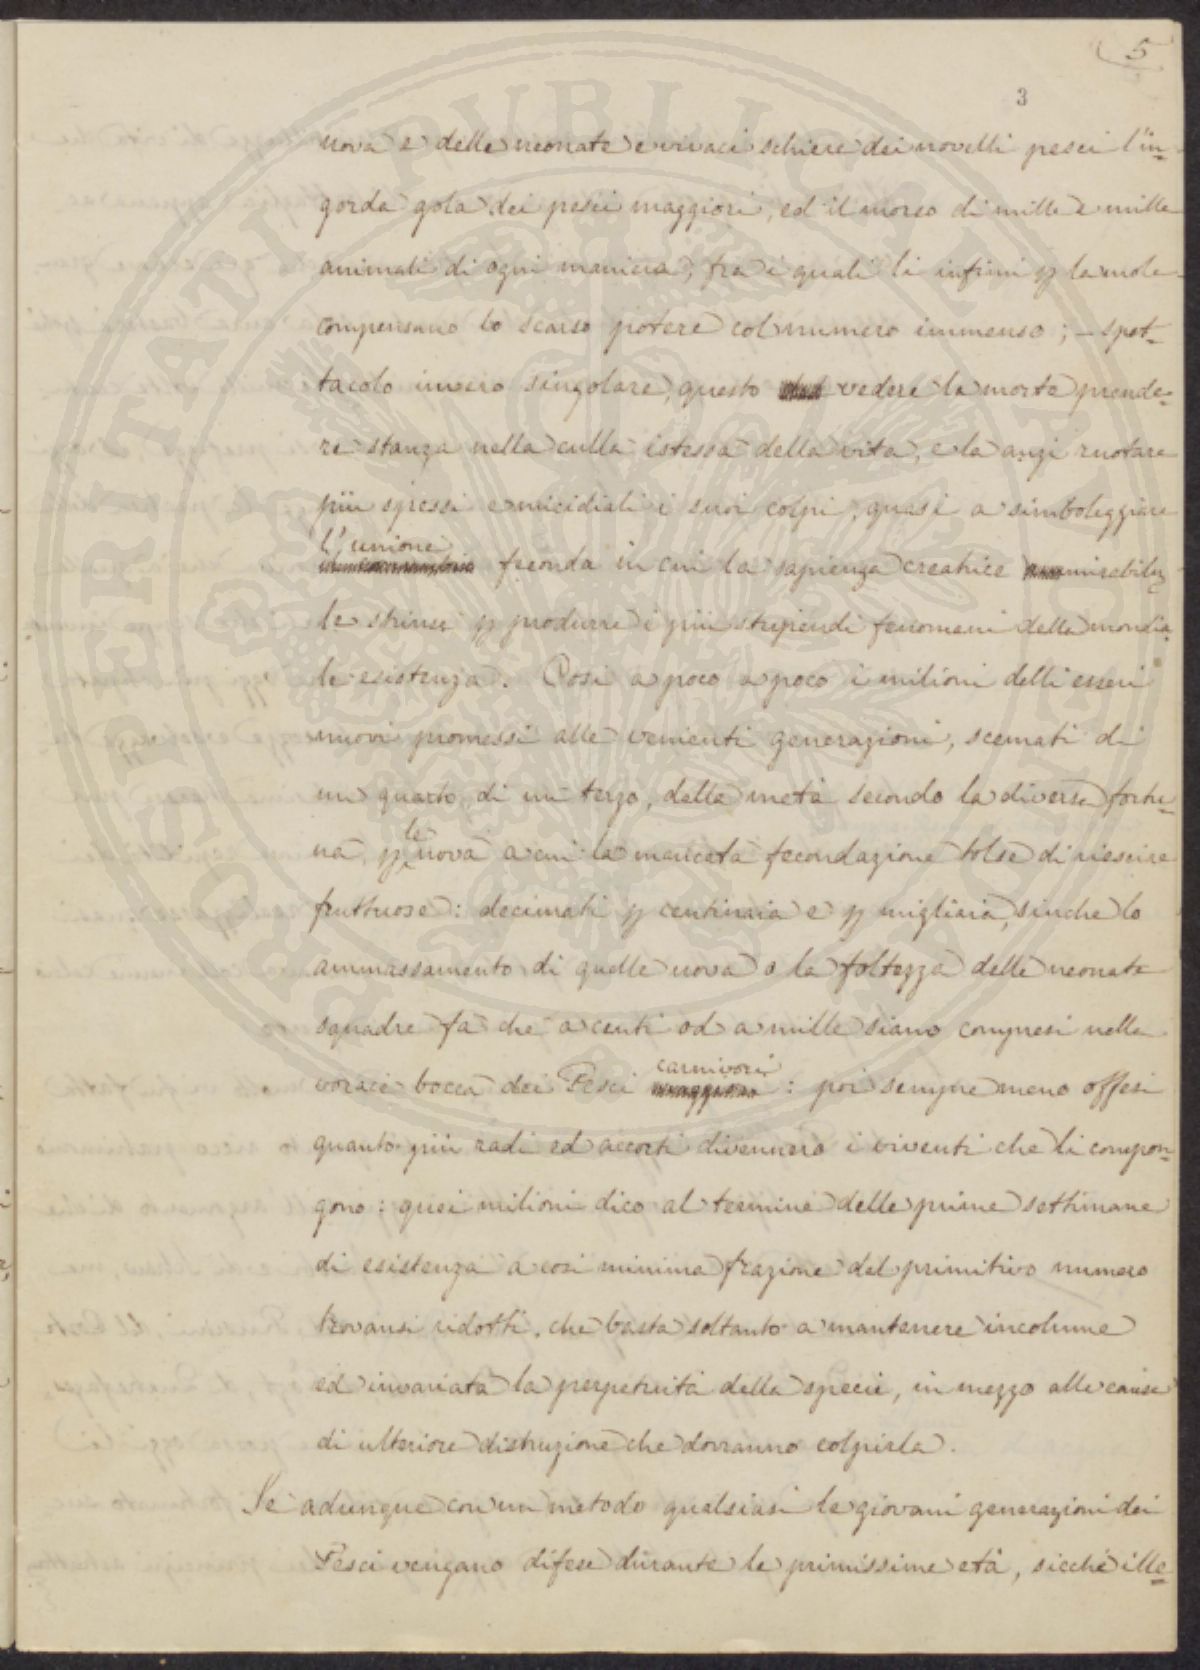 5
3
uova e delle neonate e vivaci schiere dei novelli pesci l'in-
gorda gola dei pesci maggiori, ed il morso di mille e mille
animali di ogni maniera, fra i quali li infimi p la mole
compensano lo scarso potere col numero immenso; – spet-
tacolo invero singolare, questo vedere la morte prende-
re stanza nella culla istessa della vita, e là anzi ruotare
più spessi e micidiali i suoi colpi, quasi a simboleggiare
l'unione feconda in cui la sapienza creatrice mirabilm
le strinse p produrre i più stupendi fenomeni della mondia-
le esistenza. Così a poco a poco i milioni delli esseri
nuovi promessi alle venienti generazioni, scemati di
un quarto, di un terzo, della metà secondo la diversa fortu-
na, p le uova a cui la mancata fecondazione tolse di riescire
fruttuose: decimati p centinaia e p migliaia, sinche lo
ammassamento di quelle uova o la foltezza delle neonate
squadre fa che a centi od a mille siano compresi nella
vorace bocca dei Pesci carnivori: poi sempre meno offesi
quanto più radi ed accorti divennero i viventi che li compon-
gono: quei milioni dico al termine delle prime settimane
di esistenza a così minima frazione del primitivo numero
trovansi ridotti, che basta soltanto a mantenere incolume
ed invariata la perpetuità della specie, in mezzo alle cause
di ulteriore distruzione che dovranno colpirla.
Se adunque con un metodo qualsiasi le giovani generazioni dei
Pesci vengano difese durante le primissime età, sicché ille-
PROSPERITATI PUBLICAE